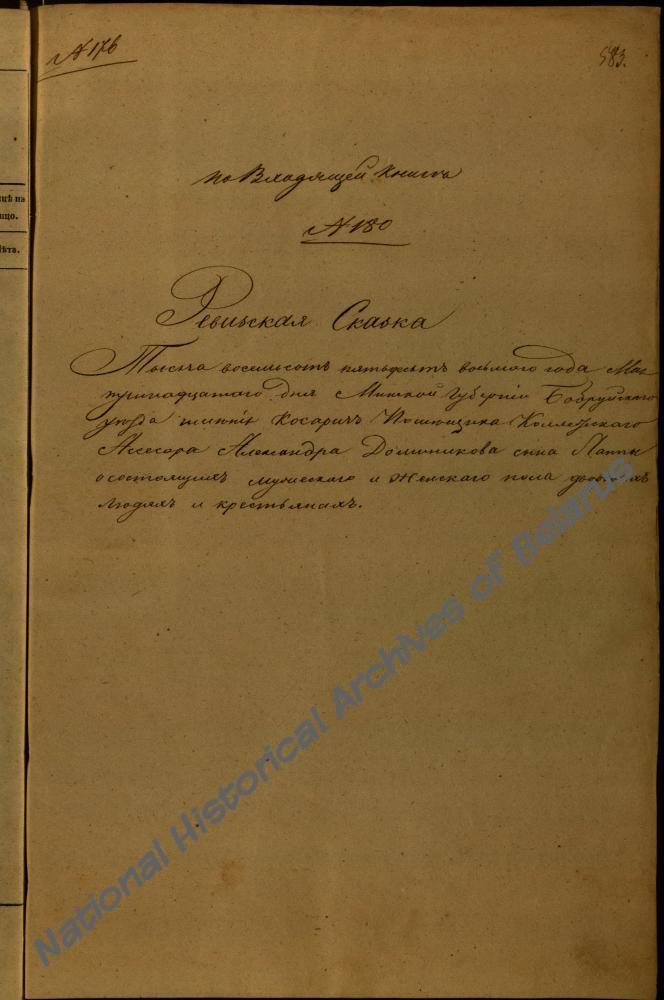 № 176
583.
по Входящей Книге
№ 180
Ревизская Сказка
Тысяча восемьсотъ пятьдесятъ восьмого года Мая
тринадцатого дня Минской Губерніи Бобруйского
уезда имѣнія Косаричъ Помещика Коллежского
Асесора Александра Доминикова сына Лаппы
о состоящихъ мужеского и женского пола дворовыхъ
людяхъ и крестьянахъ.
National Historical Archives of Belarus